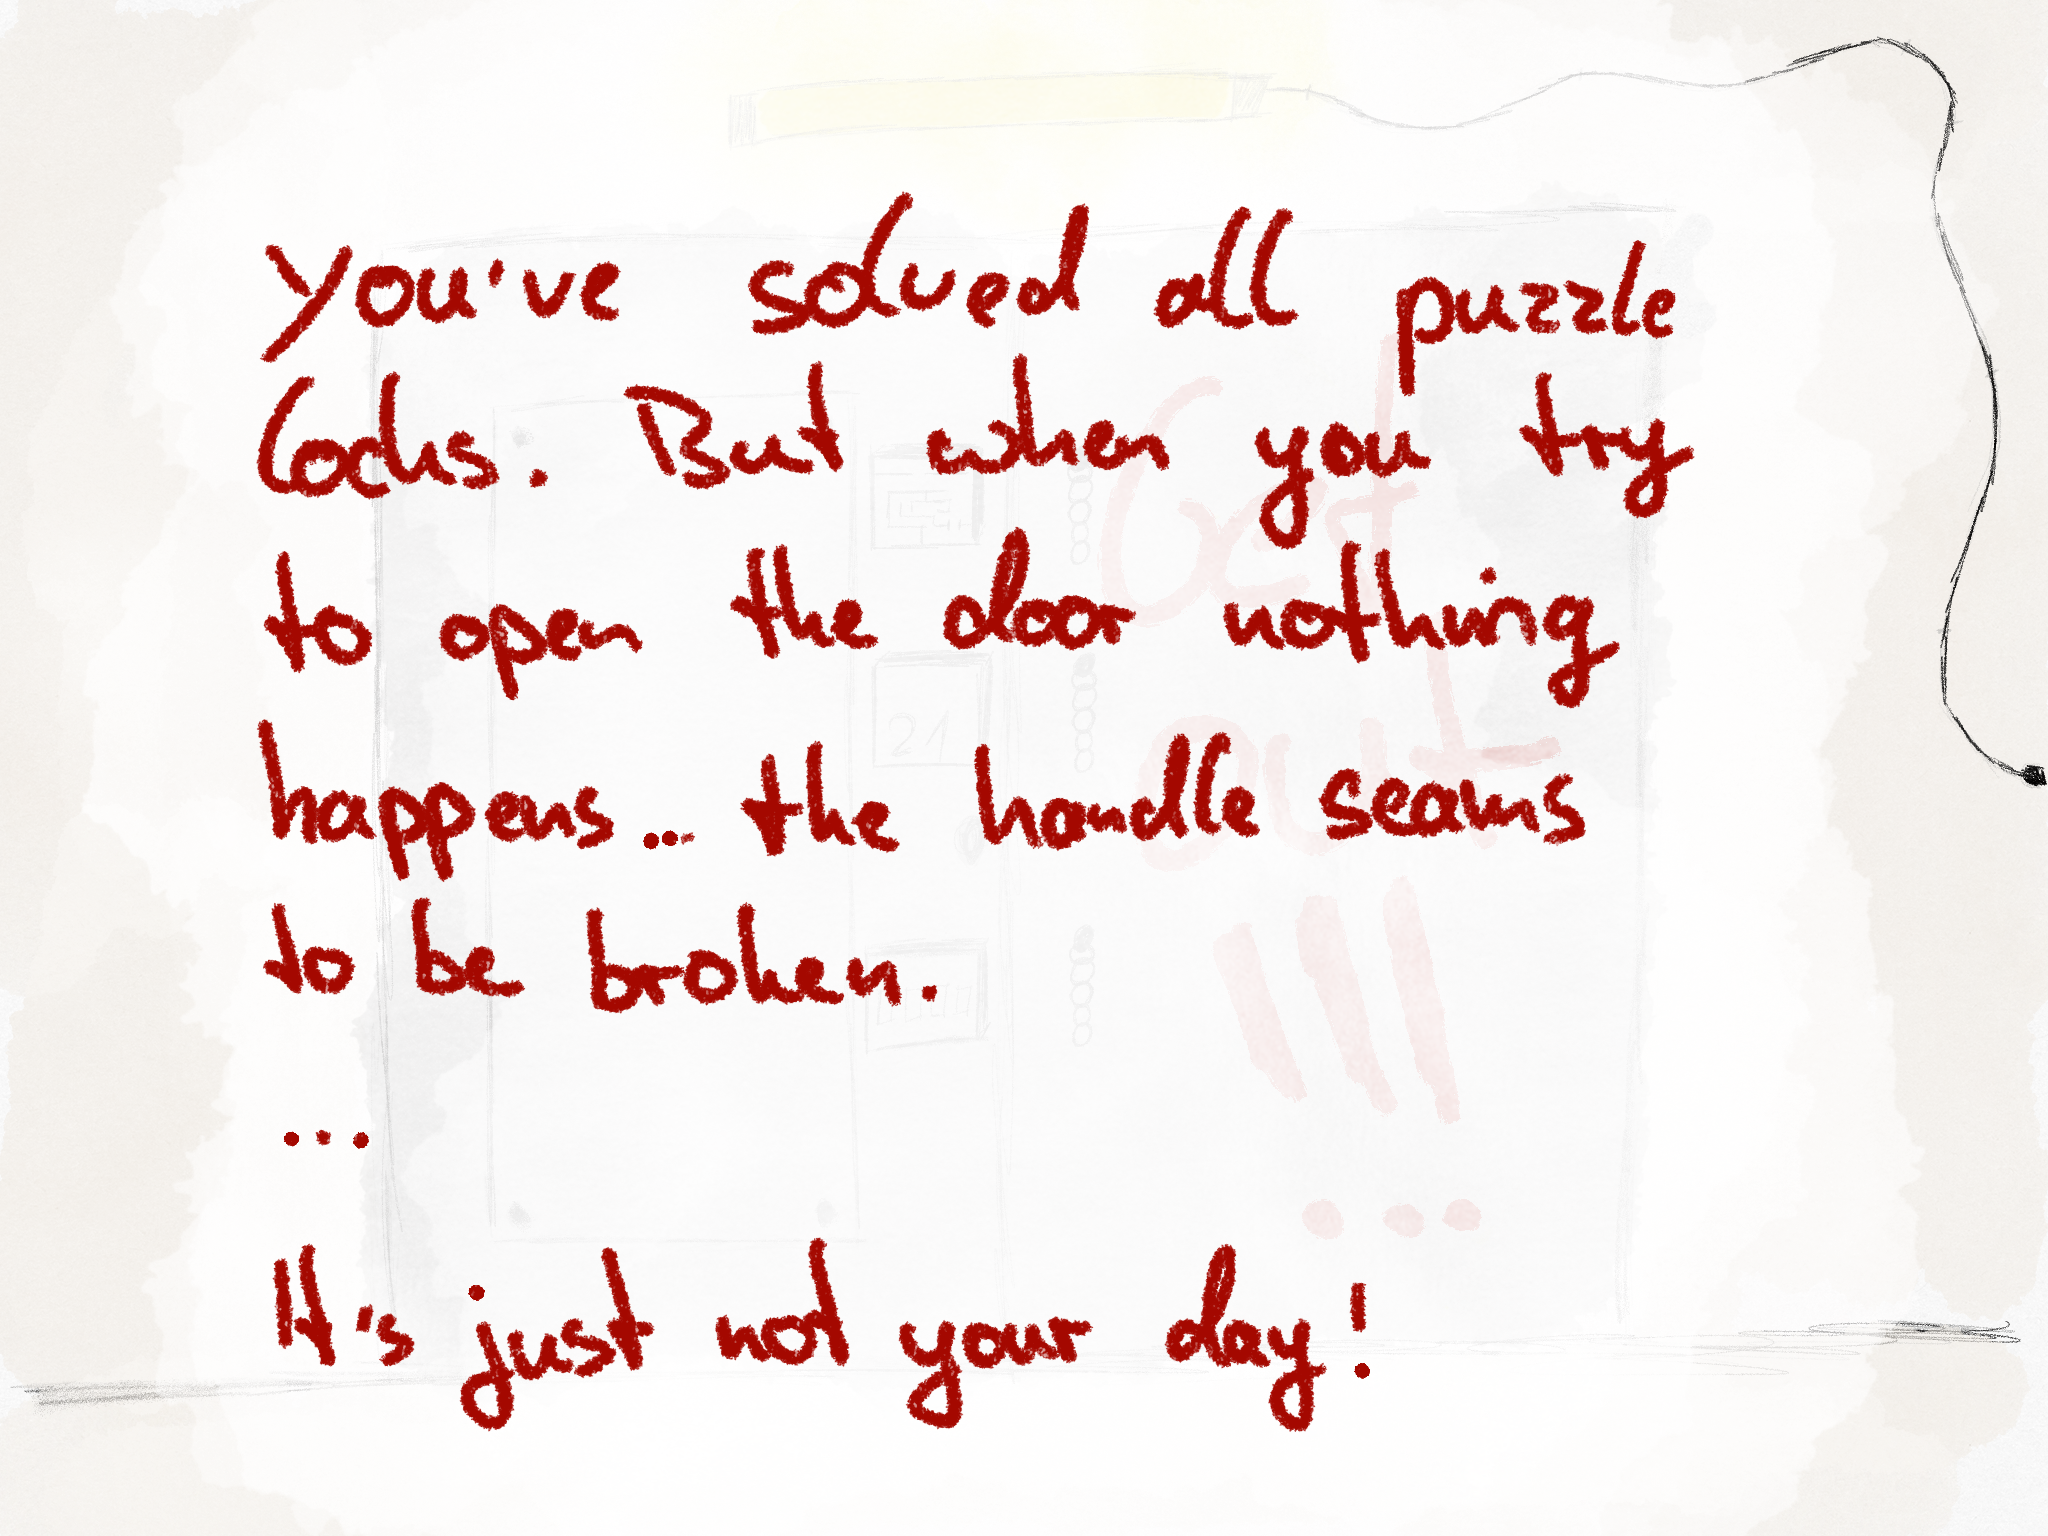 You've solved all puzzle
locks. But when you try
to open the door nothing
happens... the handle seams
to be broken.
...
It's just not your day!
Get
out
!!!
21